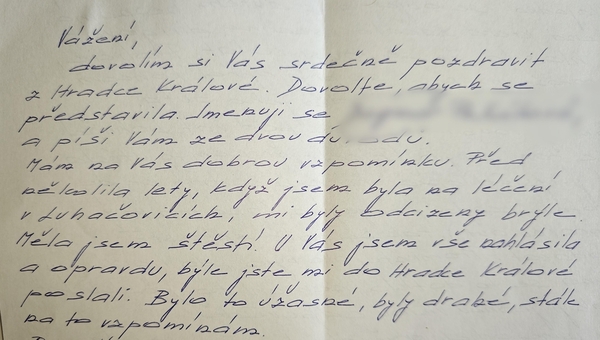 Vážení,
dovolím si Vás srdečně pozdravit
z Hradce Králové. Dovolte, abych se
představila. Jmenuji se
a píši Vám ze dvou
Mám na Vás dobrou vzpomínku. Před
několika lety, když jsem byla na léčení
v Luhačovicích, mi byly odcizeny brýle.
Měla jsem štěstí. U Vás jsem vše nahlásila
a opravdu, býle jste mi do Hradce Králové
poslali. Bylo to úžasné, byly drahé, stále
na to vzpomínám.